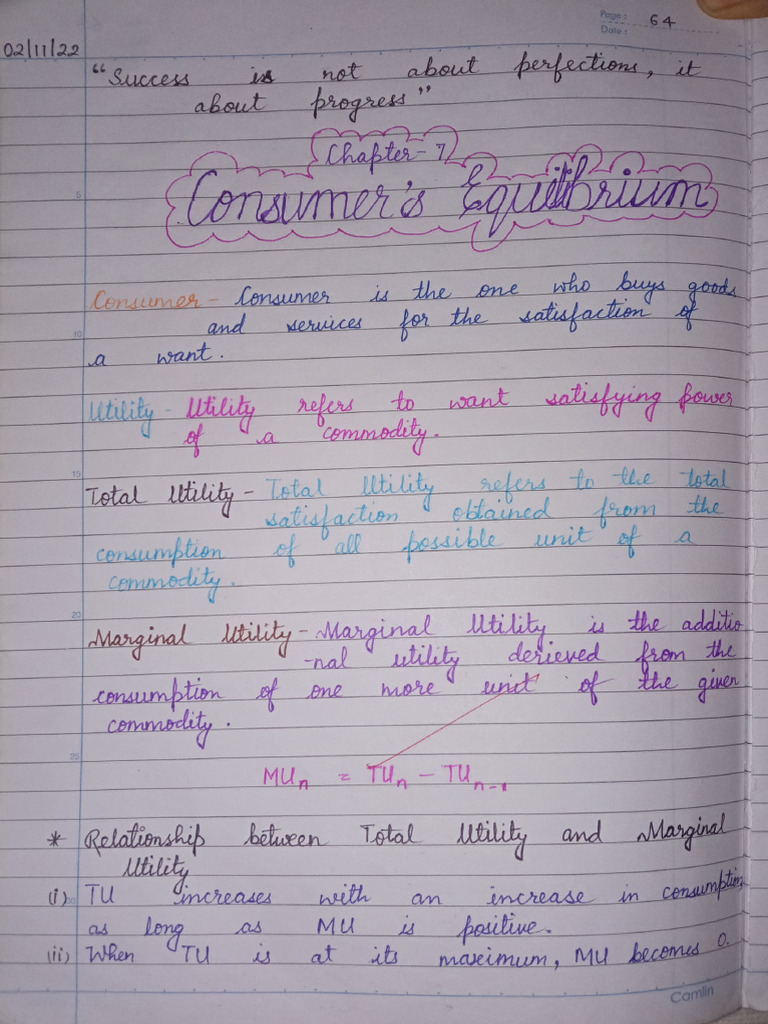 Page: 64
Date:
02/11/22
"Success is not about perfections, it
about progress"
Chapter-7
Consumer's Equilibrium
5
Consumer - Consumer is the one who buys goods
and services for the satisfaction of
10
a want.
Utility - Utility refers to want satisfying power
of a commodity.
15
Total Utility - Total Utility refers to the total
satisfaction obtained from the
consumption of all possible unit of a
commodity.
20
Marginal Utility - Marginal Utility is the additio
-nal utility derieved from the
consumption of one more unit of the given
commodity.
25
MUn = TUn - TUn-1
* Relationship between Total Utility and Marginal
Utility
(i) TU increases with an increase in consumption,
as long as MU is positive.
(ii) When TU is at its maximum, MU becomes 0.
Camlin